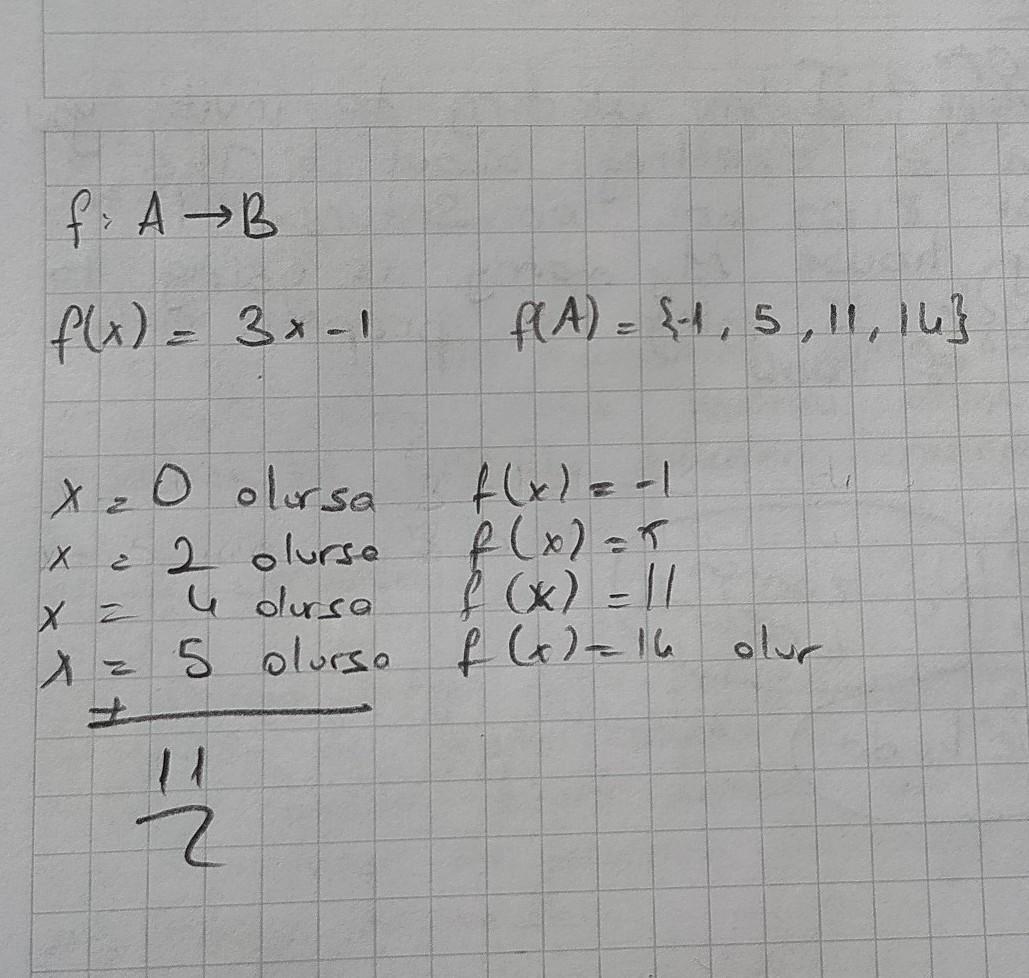 f: A → B
f(x) = 3x - 1 f(A) = {-1, 5, 11, 14}
x = 0 olursa f(x) = -1
x = 2 olursa f(x) = 5
x = 4 olursa f(x) = 11
x = 5 olursa f(x) = 14 olur
+
11